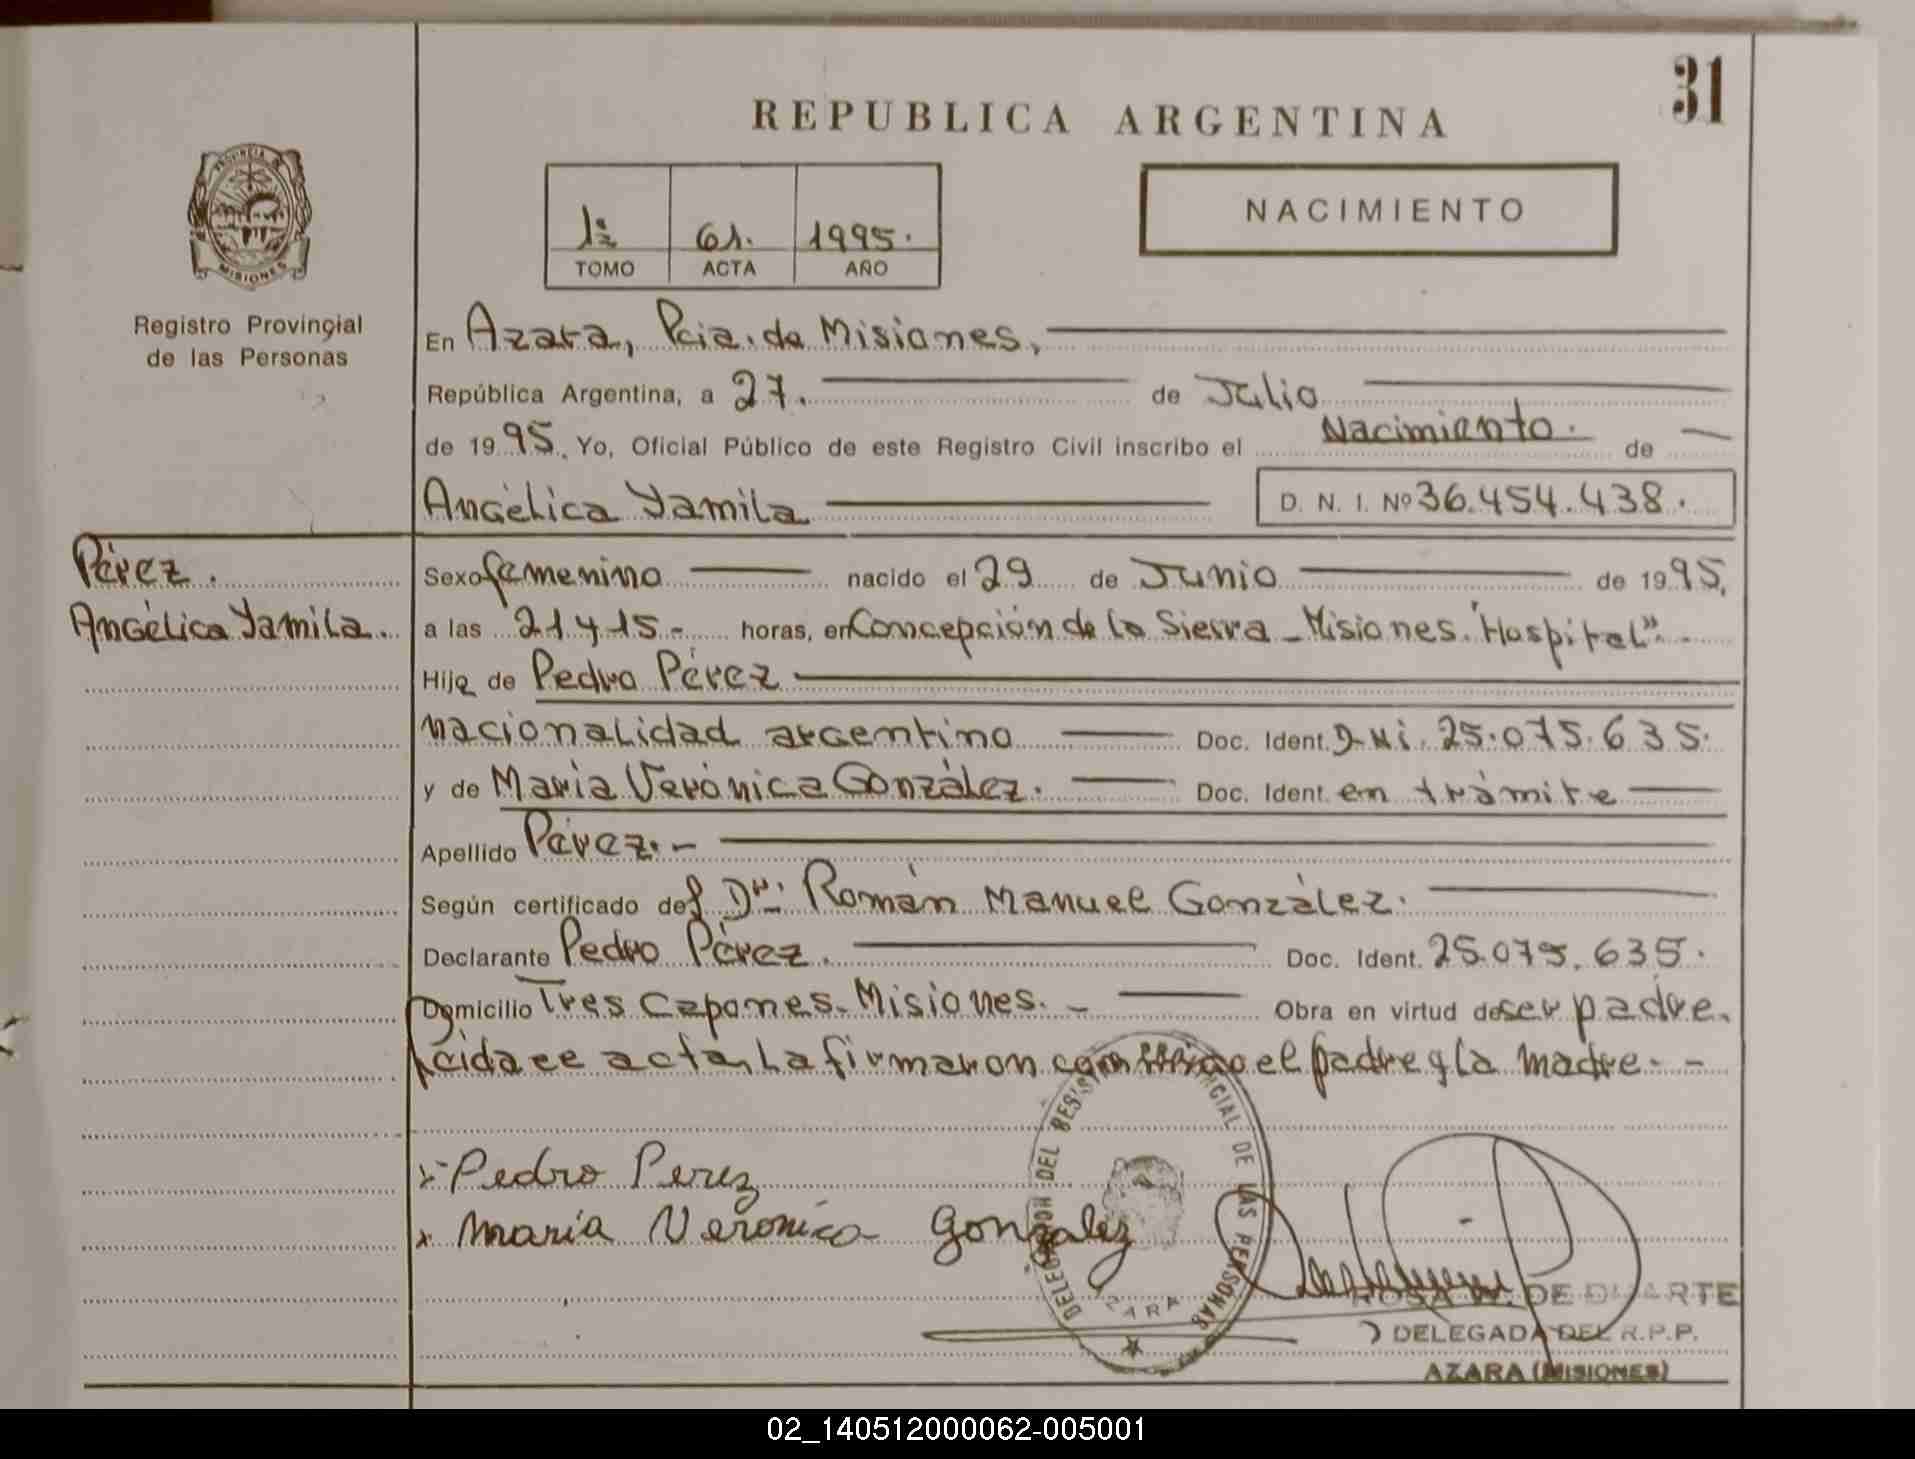 31
REPUBLICA ARGENTINA
PROVINCIA DE
MISIONES
Registro Provincial
de las Personas
1º 61. 1995.
TOMO ACTA AÑO
NACIMIENTO
En Azara, Pcia. de Misiones,
República Argentina, a 27. de Julio
de 1995, Yo, Oficial Público de este Registro Civil inscribo el Nacimiento. de
Angélica Yamila D. N. I. Nº 36.454.438.
Pérez.
Angélica Yamila.
Sexo femenino nacido el 29 de Junio de 1995,
a las 21 y 15 - horas, en Concepción de la Sierra - Misiones. "Hospital". -
Hija de Pedro Pérez
nacionalidad argentino Doc. Ident. D.N.i. 25.075.635.
y de María Verónica González. Doc. Ident. en trámite
Apellido Pérez. -
Según certificado del Dr. Román Manuel González.
Declarante Pedro Pérez. Doc. Ident. 25.075.635.
Domicilio Tres Capones. Misiones. - Obra en virtud de ser padre.
Leida el acta, la firmaron conmigo el padre y la madre. -
x Pedro Perez
x maria Veronica gonzalez
DELEGACION DEL REGISTRO PROVINCIAL DE LAS PERSONAS
AZARA
ROSA W. DE DUARTE
DELEGADA DEL R.P.P.
AZARA (MISIONES)
02_140512000062-005001